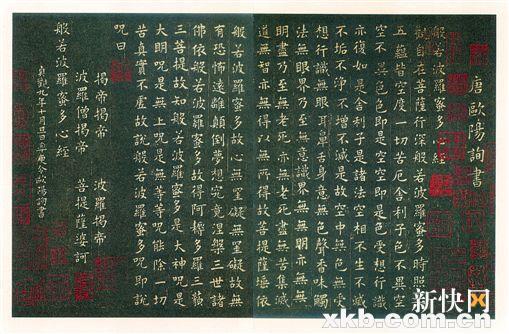 唐歐陽詢書
般若波羅蜜多心經
觀自在菩薩行深般若波羅蜜多時照見
五蘊皆空度一切苦厄舍利子色不異空
空不異色色即是空空即是色受想行識
亦復如是舍利子是諸法空相不生不滅
不垢不淨不增不減是故空中無色無受
想行識無眼耳鼻舌身意無色聲香味觸
法無眼界乃至無意識界無無明亦無無
明盡乃至無老死亦無老死盡無苦集滅
道無智亦無得以無所得故菩提薩埵依
般若波羅蜜多故心無罣礙無罣礙故無
有恐怖遠離顛倒夢想究竟涅槃三世諸
佛依般若波羅蜜多故得阿耨多羅三藐
三菩提故知般若波羅蜜多是大神呪是
大明呪是無上呪是無等等呪能除一切
苦真實不虛故說般若波羅蜜多呪即說
呪曰
揭帝揭帝 波羅揭帝
波羅僧揭帝 菩提薩婆訶
般若波羅蜜多心經
貞觀九年十月旦日率更令歐陽詢書
新快网
xkb.com.cn